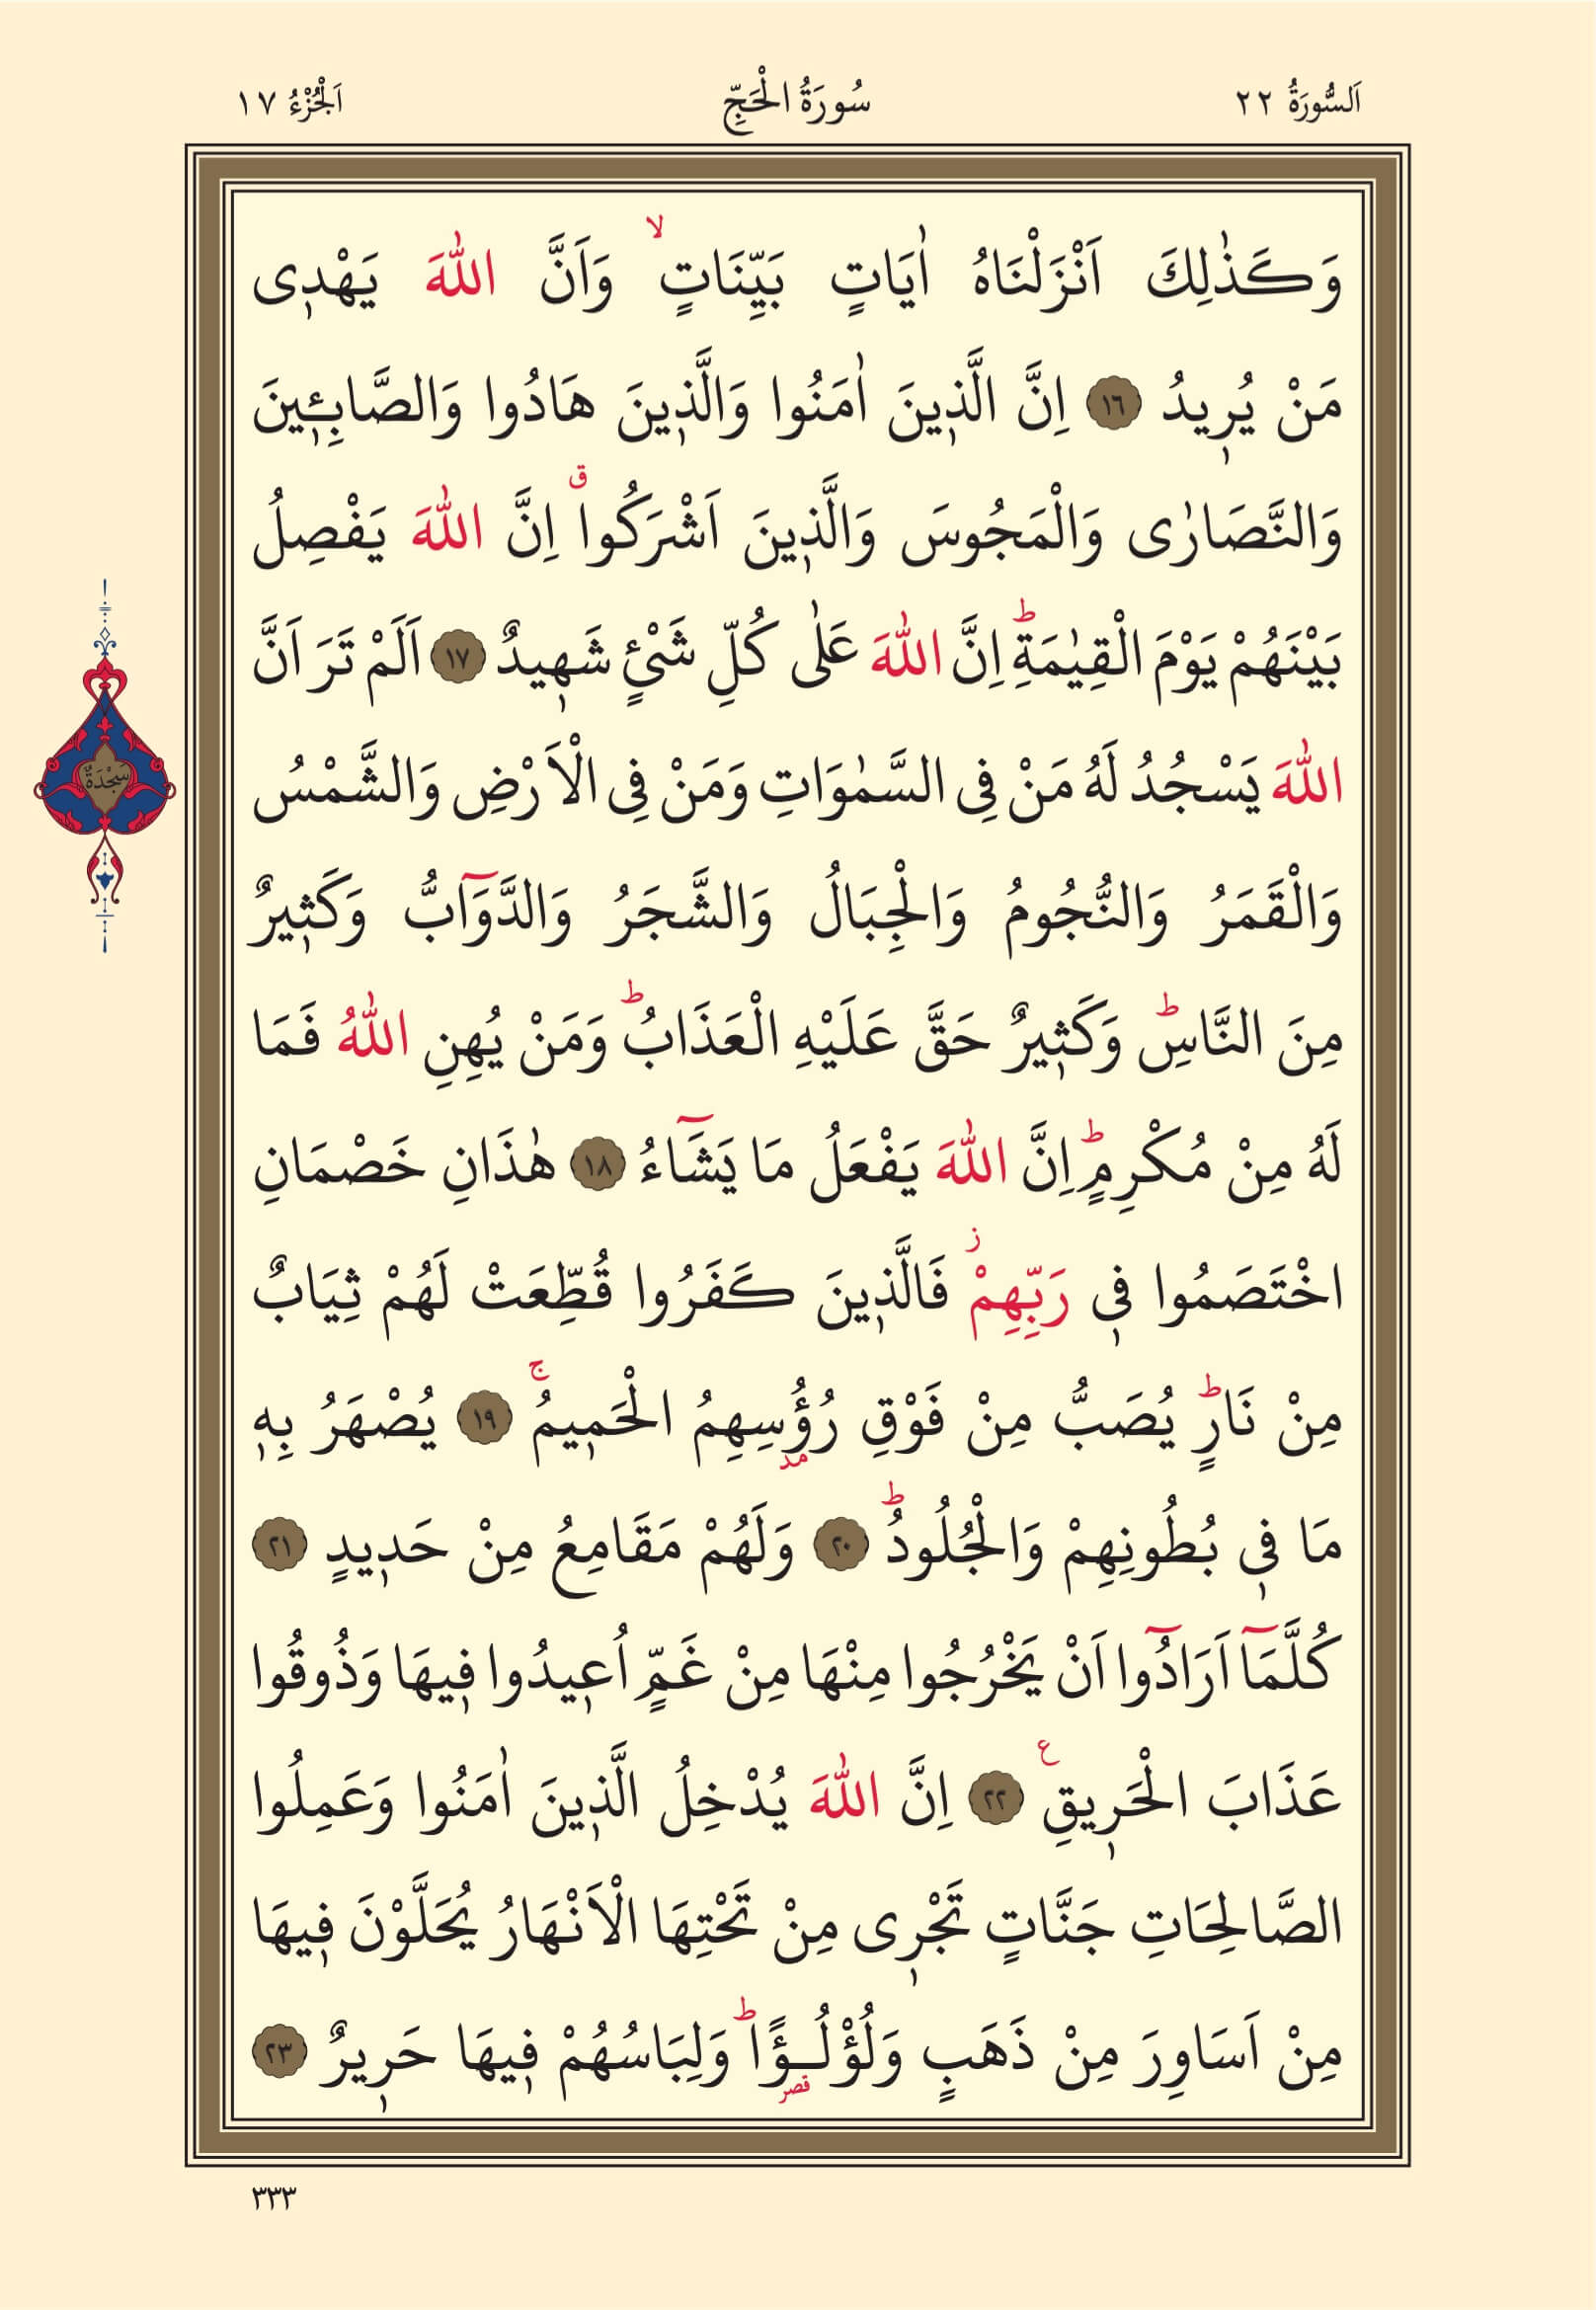 اَلسُّورَةُ ٢٢ سُورَةُ الْحَجِّ اَلْجُزْءُ ١٧
وَكَذٰلِكَ اَنْزَلْنَاهُ اٰيَاتٍ بَيِّنَاتٍۙ وَاَنَّ اللّٰهَ يَهْد۪ى
مَنْ يُر۪يدُ ﴿١٦﴾ اِنَّ الَّذ۪ينَ اٰمَنُوا وَالَّذ۪ينَ هَادُوا وَالصَّابِـ۪ٔينَ
وَالنَّصَارٰى وَالْمَجُوسَ وَالَّذ۪ينَ اَشْرَكُواࣗ اِنَّ اللّٰهَ يَفْصِلُ
بَيْنَهُمْ يَوْمَ الْقِيٰمَةِؕ اِنَّ اللّٰهَ عَلٰى كُلِّ شَيْءٍ شَه۪يدٌ ﴿١٧﴾ اَلَمْ تَرَ اَنَّ
اللّٰهَ يَسْجُدُ لَهُ مَنْ فِى السَّمٰوَاتِ وَمَنْ فِى الْاَرْضِ وَالشَّمْسُ
سَجْدَةٌ
وَالْقَمَرُ وَالنُّجُومُ وَالْجِبَالُ وَالشَّجَرُ وَالدَّوَٓابُّ وَكَث۪يرٌ
مِنَ النَّاسِؕ وَكَث۪يرٌ حَقَّ عَلَيْهِ الْعَذَابُؕ وَمَنْ يُهِنِ اللّٰهُ فَمَا
لَهُ مِنْ مُكْرِمٍؕ اِنَّ اللّٰهَ يَفْعَلُ مَا يَشَٓاءُ ﴿١٨﴾ هٰذَانِ خَصْمَانِ
اخْتَصَمُوا ف۪ى رَبِّهِمْؗ فَالَّذ۪ينَ كَفَرُوا قُطِّعَتْ لَهُمْ ثِيَابٌ
مِنْ نَارٍؕ يُصَبُّ مِنْ فَوْقِ رُؤُسِهِمُ الْحَم۪يمُۚ ﴿١٩﴾ يُصْهَرُ بِه۪
مد
مَا ف۪ى بُطُونِهِمْ وَالْجُلُودُؕ ﴿٢٠﴾ وَلَهُمْ مَقَامِعُ مِنْ حَد۪يدٍ ﴿٢١﴾
كُلَّمَٓا اَرَادُٓوا اَنْ يَخْرُجُوا مِنْهَا مِنْ غَمٍّ اُع۪يدُوا ف۪يهَا وَذُوقُوا
عَذَابَ الْحَر۪يقِ ع ﴿٢٢﴾ اِنَّ اللّٰهَ يُدْخِلُ الَّذ۪ينَ اٰمَنُوا وَعَمِلُوا
الصَّالِحَاتِ جَنَّاتٍ تَجْر۪ى مِنْ تَحْتِهَا الْاَنْهَارُ يُحَلَّوْنَ ف۪يهَا
مِنْ اَسَاوِرَ مِنْ ذَهَبٍ وَلُؤْلُـؤًاؕ وَلِبَاسُهُمْ ف۪يهَا حَر۪يرٌ ﴿٢٣﴾
قصر
٣٣٣